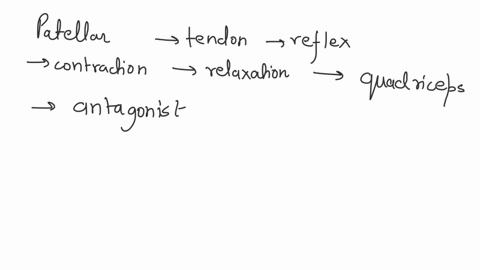 Patellar → tendon → reflex
→ contraction → relaxation → quadriceps
→ antagonist